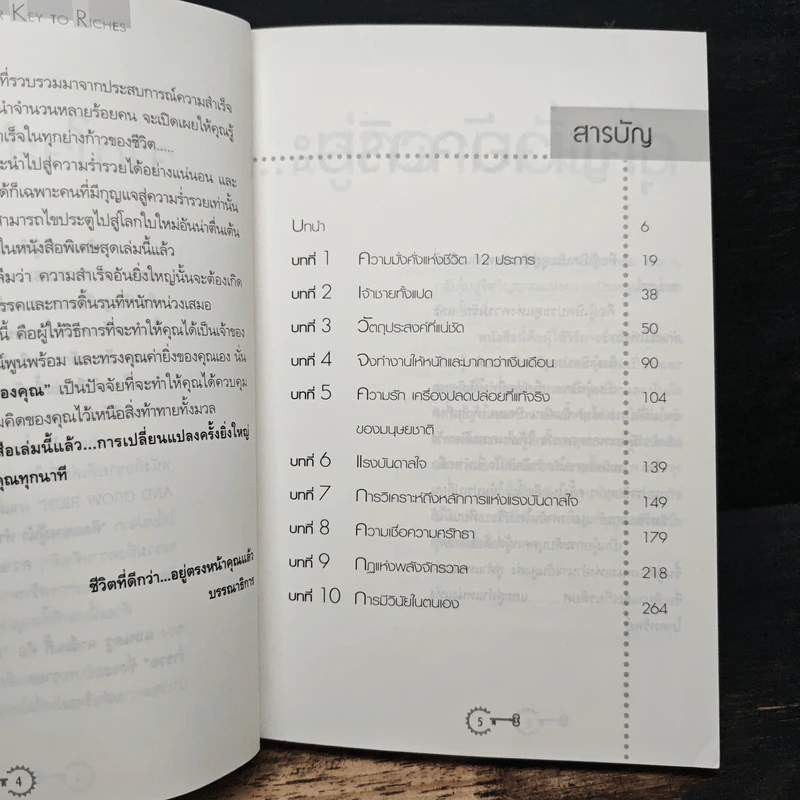 KEY TO RICHES
ที่รวบรวมมาจากประสบการณ์ความสำเร็จ
นำจำนวนหลายร้อยคน จะเปิดเผยให้คุณรู้
ำเร็จในทุกย่างก้าวของชีวิต.....
ะนำไปสู่ความร่ำรวยได้อย่างแน่นอน และ
ได้ก็เฉพาะคนที่มีกุญแจสู่ความร่ำรวยเท่านั้น
สามารถไขประตูไปสู่โลกใบใหม่อันน่าตื่นเต้น
ในหนังสือพิเศษสุดเล่มนี้แล้ว
ลืมว่า ความสำเร็จอันยิ่งใหญ่นั้นจะต้องเกิด
รรคและการดิ้นรนที่หนักหน่วงเสมอ
นี้ คือผู้ให้วิธีการที่จะทำให้คุณได้เป็นเจ้าของ
์พูนพร้อม และทรงคุณค่ายิ่งของคุณเอง นั่น
องคุณ" เป็นปัจจัยที่จะทำให้คุณได้ควบคุม
มคิดของคุณไว้เหนือสิ่งท้าทายทั้งมวล
สือเล่มนี้แล้ว...การเปลี่ยนแปลงครั้งยิ่งใหญ่
คุณทุกนาที
ชีวิตที่ดีกว่า...อยู่ตรงหน้าคุณแล้ว
บรรณาธิการ
4
สารบัญ
บทนำ 6
บทที่ 1 ความมั่งคั่งแห่งชีวิต 12 ประการ 19
บทที่ 2 เจ้าชายทั้งแปด 38
บทที่ 3 วัตถุประสงค์ที่แน่ชัด 50
บทที่ 4 จงทำงานให้หนักและมากกว่าเงินเดือน 90
บทที่ 5 ความรัก เครื่องปลดปล่อยที่แท้จริง 104
ของมนุษยชาติ
บทที่ 6 แรงบันดาลใจ 139
บทที่ 7 การวิเคราะห์ถึงหลักการแห่งแรงบันดาลใจ 149
บทที่ 8 ความเชื่อความศรัทธา 179
บทที่ 9 กฎแห่งพลังจักรวาล 218
บทที่ 10 การมีวินัยในตนเอง 264
5